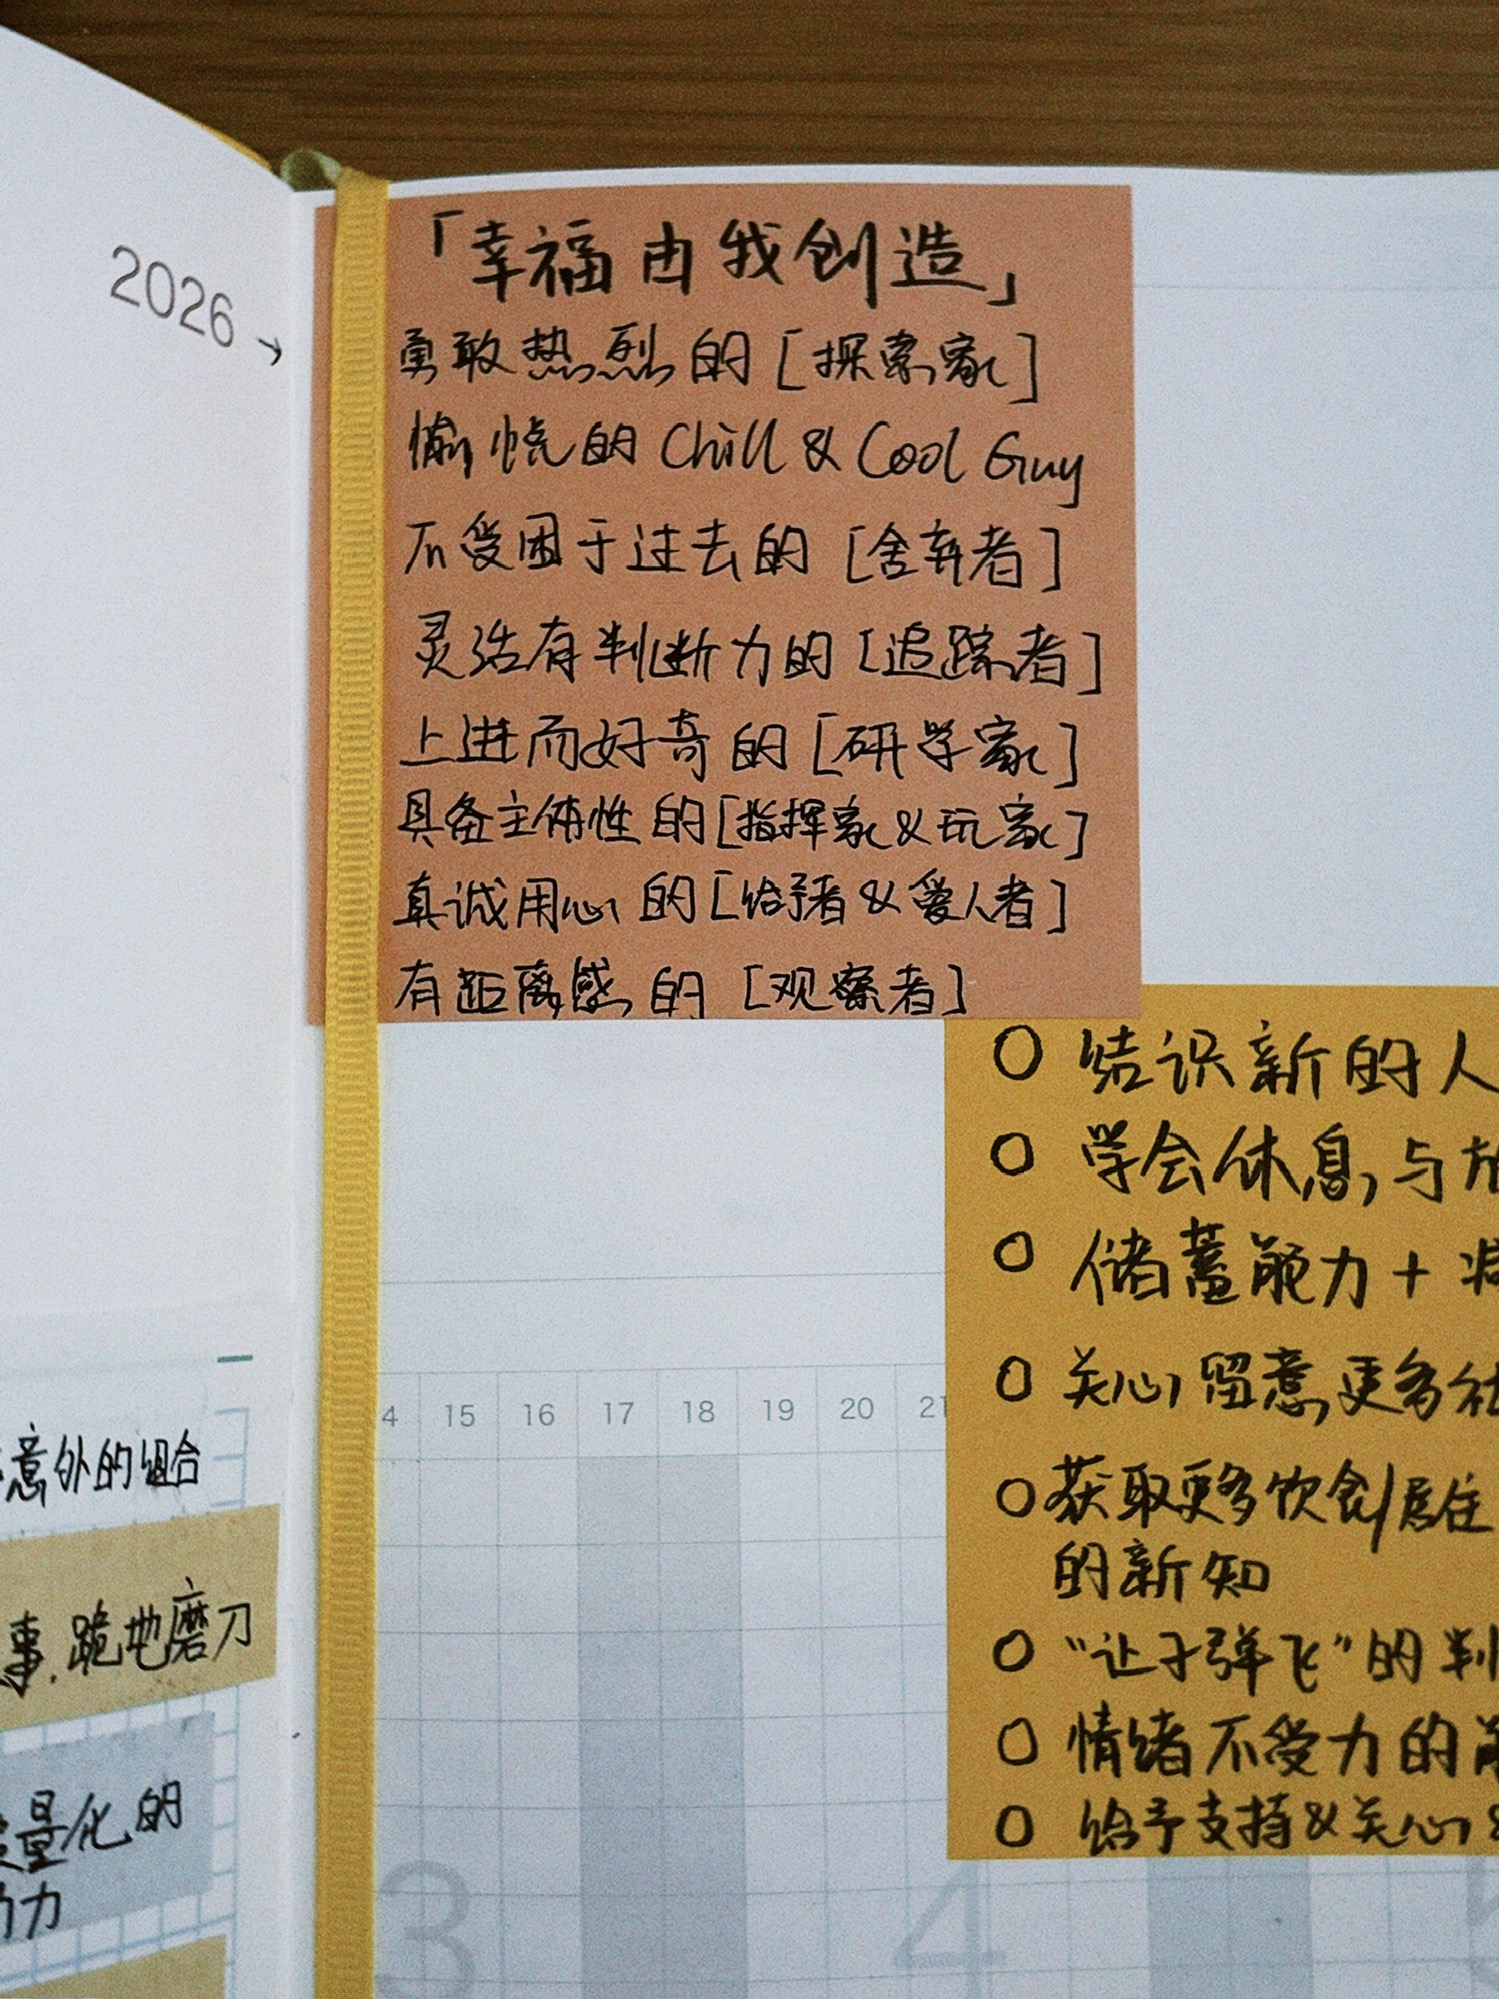 2026 →
「幸福由我创造」
勇敢热烈的 [探索家]
愉悦的 Chill & Cool Guy
不受困于过去的 [舍弃者]
灵活有判断力的 [追踪者]
上进而好奇的 [研学家]
具备主体性的 [指挥家 & 玩家]
真诚用心的 [给予者 & 爱人者]
有距离感的 [观察者]
○ 结识新的人
○ 学会休息,与
○ 储蓄能力 +
○ 关心,留意更多社
○ 获取更多饮食/居住
的新知
○ “让子弹飞”的判
○ 情绪不受力的
○ 给予支持 & 关心 &
4 15 16 17 18 19 20 21
意外的组合
事,跪地磨刀
量化的
力
3 4